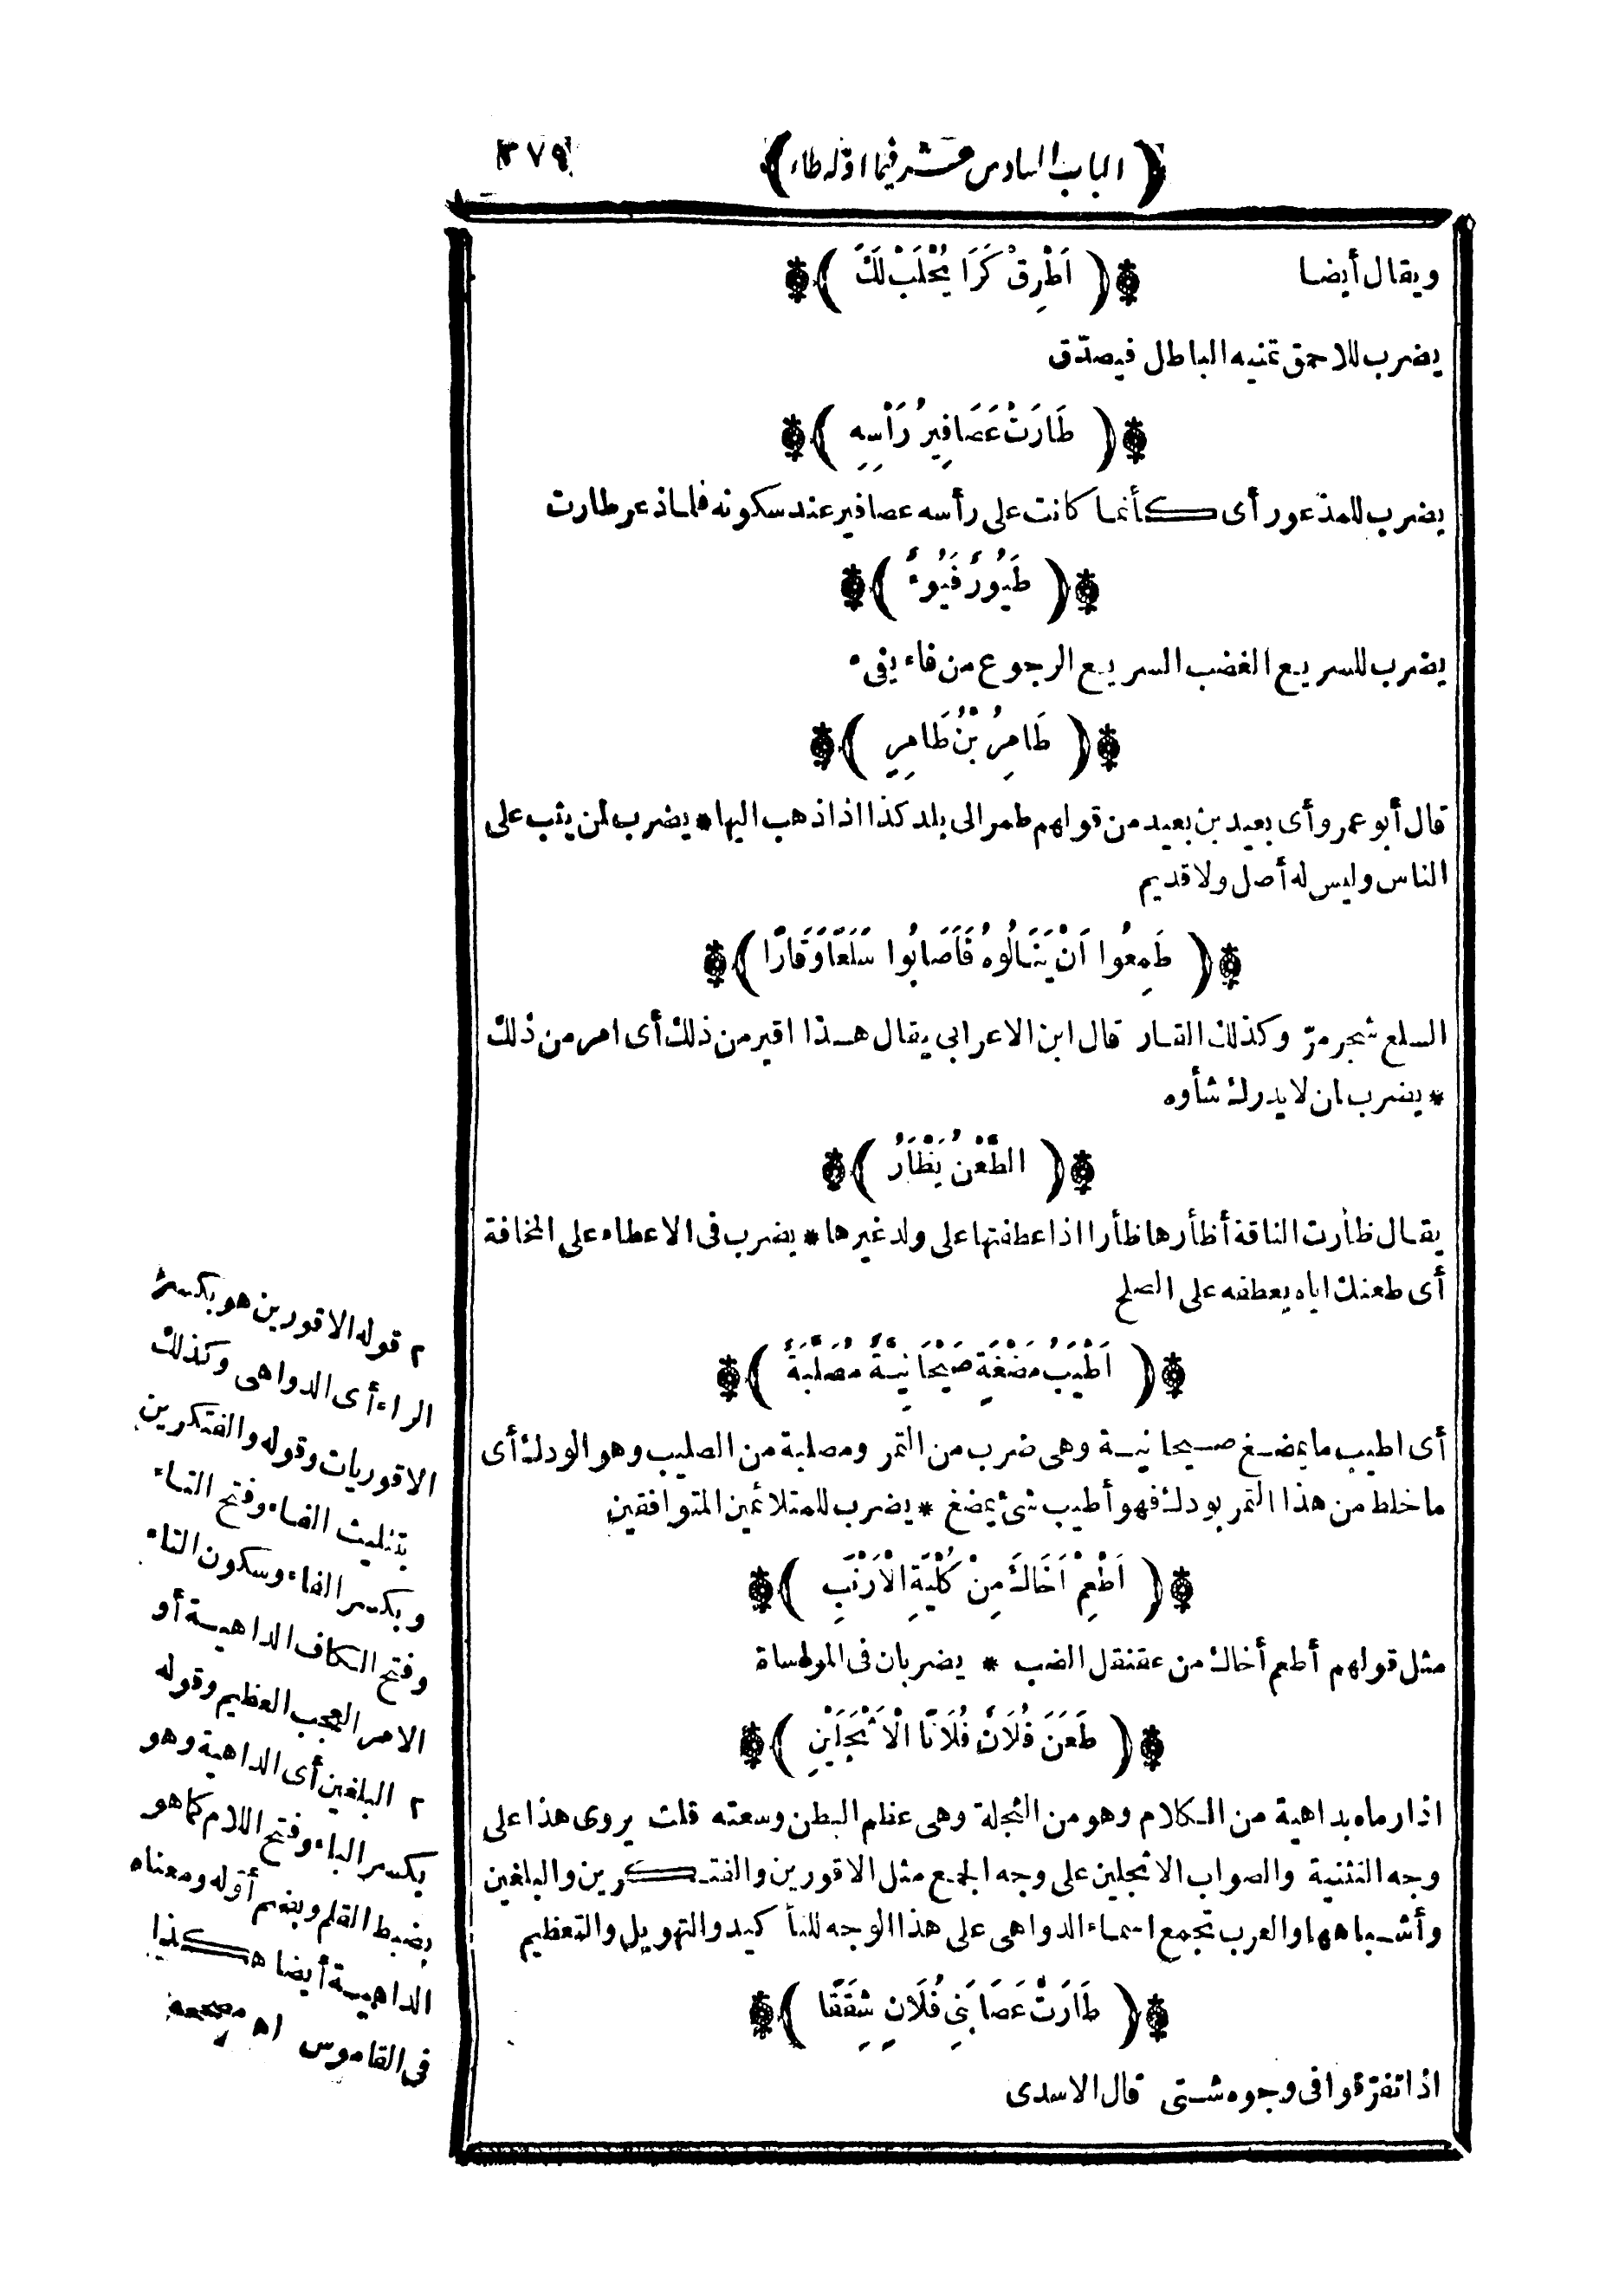 ﴿ الباب السادس عشر فيما اوّله طاء ﴾ ٣٧٩
ويقال أيضا ﴿ اَطْرِقْ كَرَا يُحْلَبْ لَكَ ﴾
يضرب للاحمق تمنيه الباطل فيصدّق
﴿ طَارَتْ عَصَافِيرُ رَأْسِهِ ﴾
يضرب للمذعور أى كأنما كانت على رأسه عصافير عند سكونه فلما ذعر طارت
﴿ طَيُورٌ فَيُوءٌ ﴾
يضرب للسريع الغضب السريع الرجوع من فاء يفىء
﴿ طَامِرُ بْنُ طَامِرٍ ﴾
قال أبو عمرو أى بعيد بن بعيد من قولهم طمر الى بلد كذا اذا ذهب اليها * يضرب لمن يثب على
الناس وليس له أصل ولا قديم
﴿ طَمِعُوا اَنْ يَنَالُوهُ فَاَصَابُوا سَلَعًا وَقَارًا ﴾
السلع شجر مرّ وكذلك القار قال ابن الاعرابي يقال هذا اقير من ذلك أى امر من ذلك
* يضرب لمن لا يدرك شأوه
﴿ الطَّعْنُ يَظْأَرُ ﴾
يقال ظأرت الناقة أظأرها ظأرا اذا عطفتها على ولد غيرها * يضرب فى الاعطاء على المخافة
أى طعنك اياه يعطفه على الصلح
﴿ اَطْيَبُ مَضْغَةٍ صَيْحَانِيَّةٌ مُصَلَّبَةٌ ﴾
أى اطيب ما يمضغ صيحانية وهى ضرب من التمر ومصلبة من الصليب وهو الودك أى
ما خلط من هذا التمر بودك فهو أطيب شئ يمضغ * يضرب للمتلائمين المتوافقين
﴿ اَطْعِمْ اَخَاكَ مِنْ كُلْيَةِ الْاَرْنَبِ ﴾
مثل قولهم أطعم أخاك من عقنقل الضب * يضربان فى المواساة
﴿ طَعَنَ فُلَانٌ فُلَانًا الْاَثْجَلَيْنِ ﴾
اذا رماه بداهية من الكلام وهو من الثجلة وهى عظم البطن وسعته قلت يروى هذا على
وجه التثنية والصواب الاثجلين على وجه الجمع مثل الاقورين والفتكرين والبلغين
وأشباهها والعرب تجمع اسماء الدواهى على هذا الوجه للتأكيد والتهويل والتعظيم
﴿ طَارَتْ عَصَا بَنِى فُلَانٍ شِقَقًا ﴾
اذا تفرّقوا فى وجوه شتى قال الاسدى
٢ قوله الاقورين هو بكسر
الراء أى الدواهى وكذلك
الاقوريات وقوله والفتكرين
بتثليث الفاء وفتح التاء
وبكسر الفاء وسكون التاء
وفتح الكاف الداهية أو
الامر العجب العظيم وقوله
٢ البلغين أى الداهية وهو
بكسر الباء وفتح اللام كما هو
بضبط القلم وبضم أوّله ومعناه
الداهية أيضا هكذا
فى القاموس اه مصححه